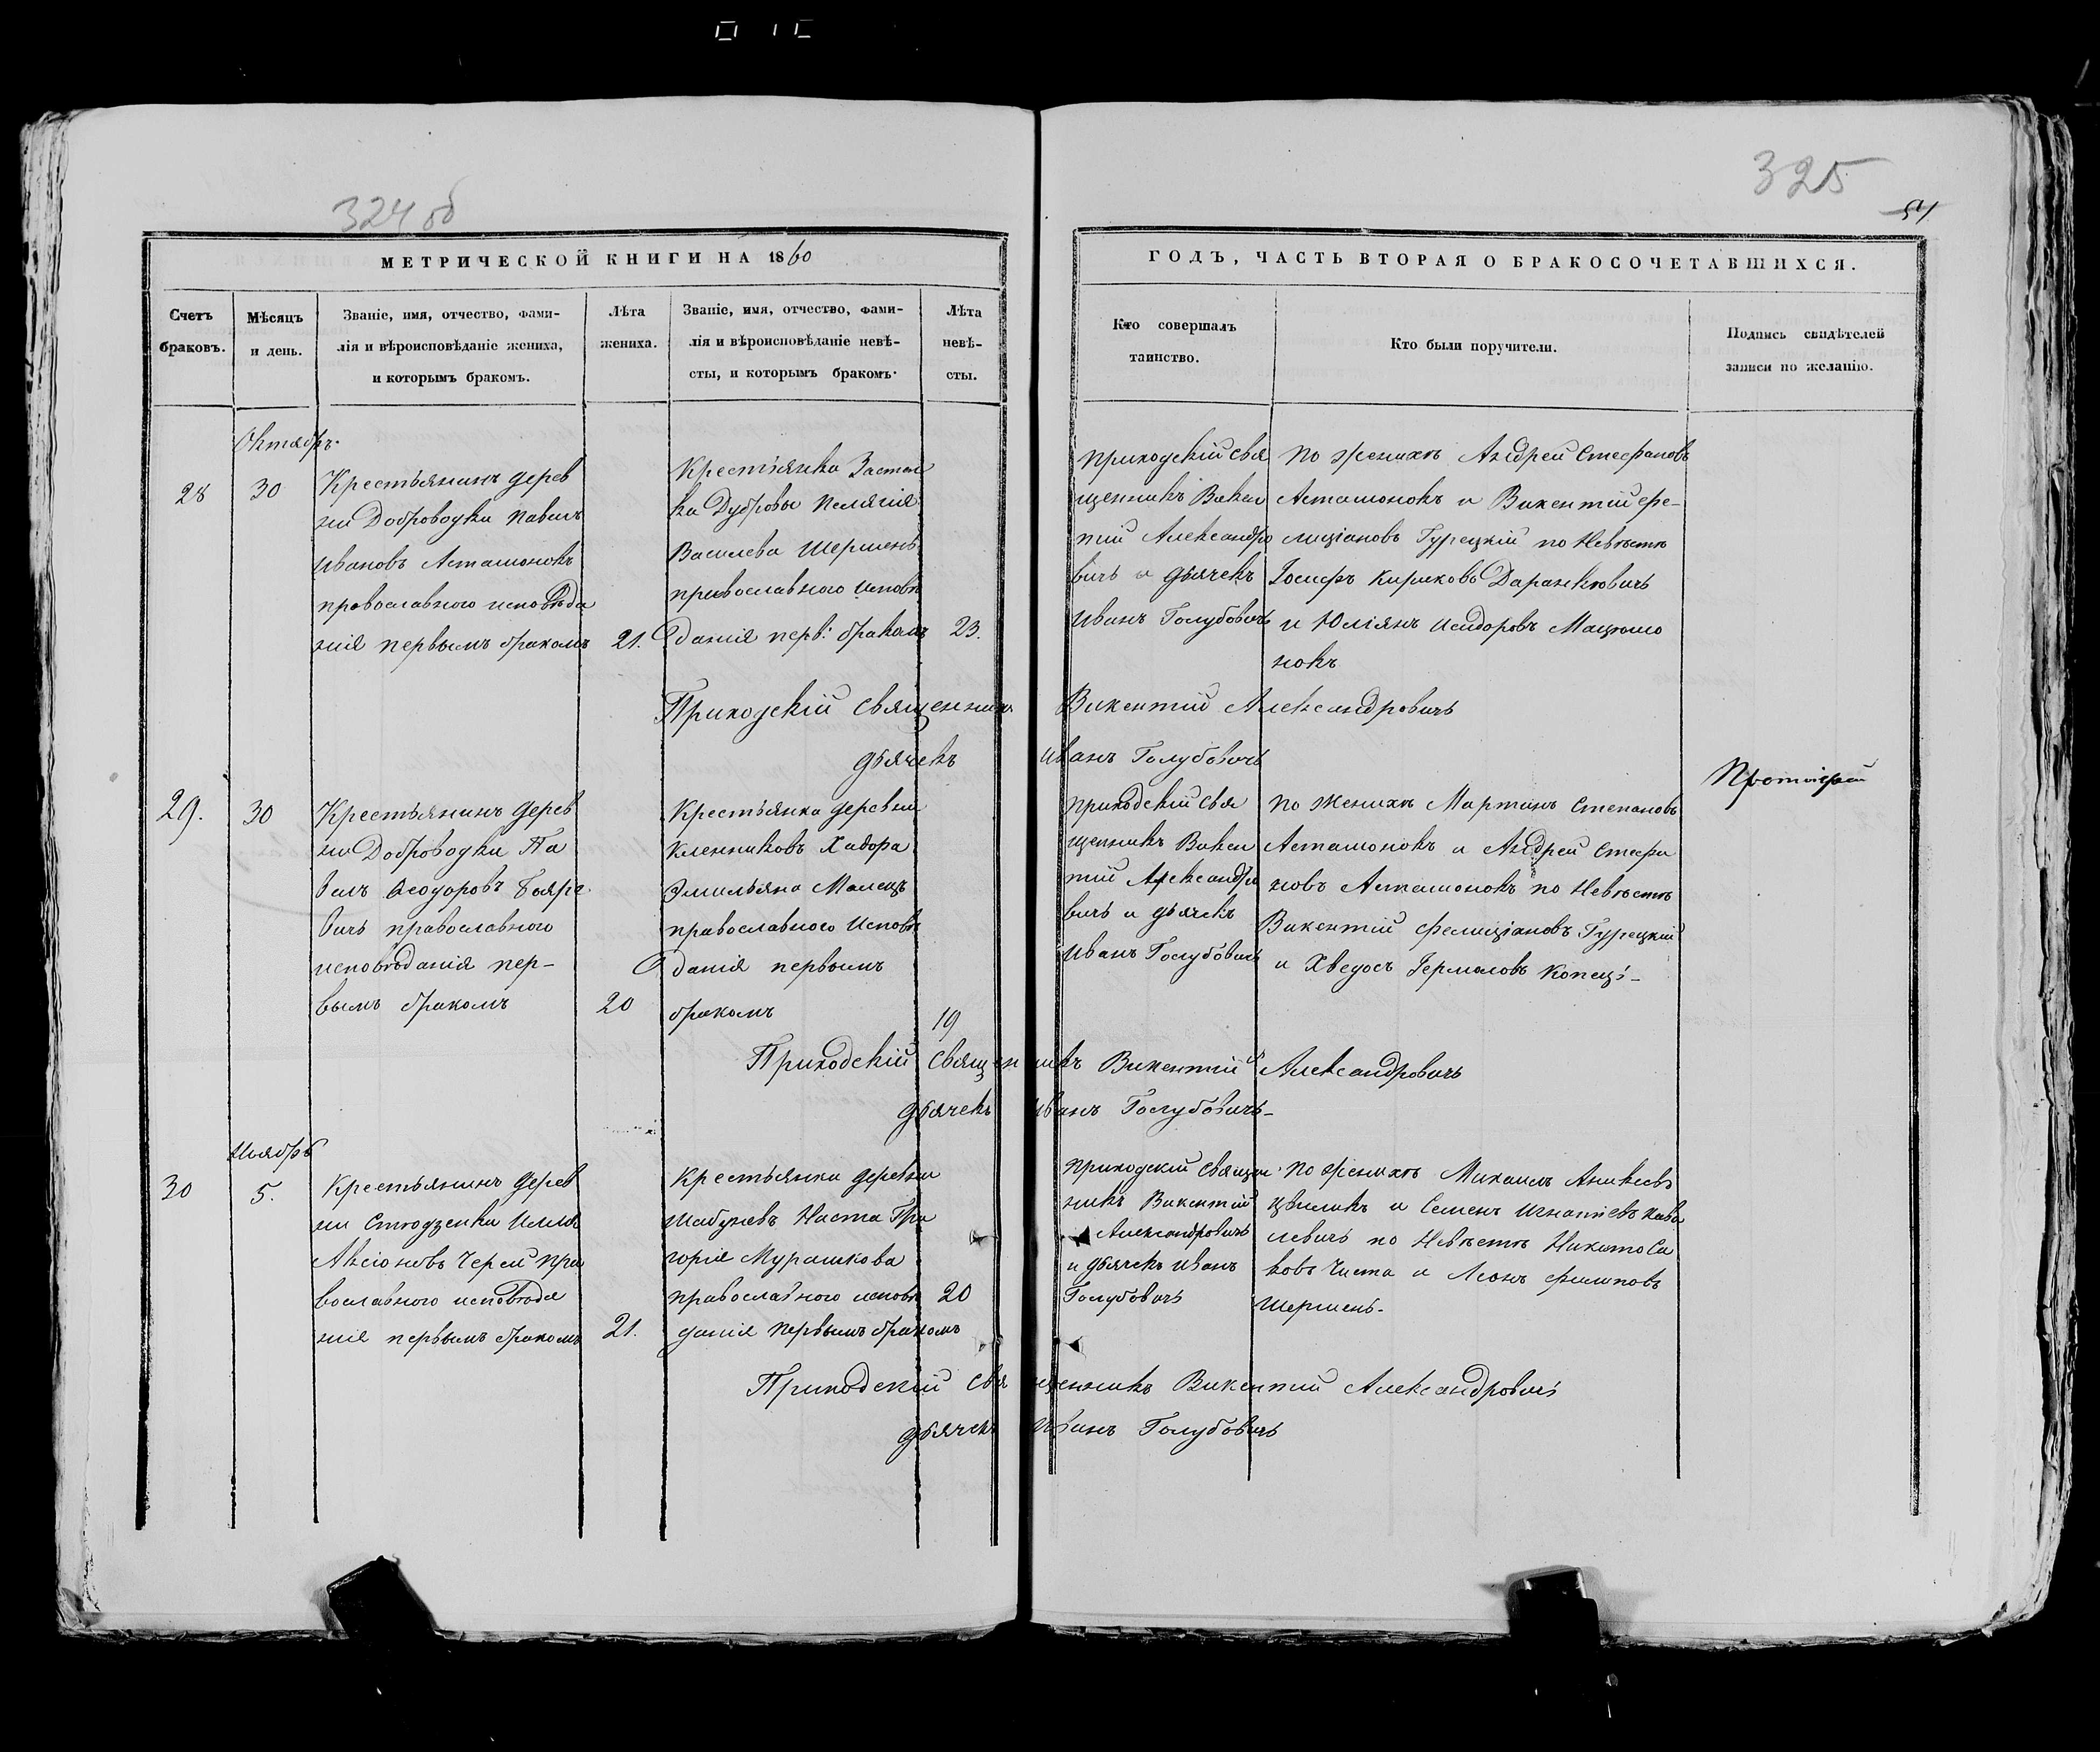 324 об
325
54
МЕТРИЧЕСКОЙ КНИГИ НА 1860
ГОДЪ, ЧАСТЬ ВТОРАЯ О БРАКОСОЧЕТАВШИХСЯ.
Счетъ
браковъ.
Мѣсяцъ
и день.
Званіе, имя, отчество, фами-
лія и вѣроисповѣданіе жениха,
и которымъ бракомъ.
Лѣта
жениха.
Званіе, имя, отчество, фами-
лія и вѣроисповѣданіе невѣ-
сты, и которымъ бракомъ.
Лѣта
невѣ-
сты.
Кто совершалъ
таинство.
Кто были поручители.
Подпись свидѣтелей
записи по желанію.
Октябрь.
28
30
Крестьянинъ дерев
ни Доброводки Павелъ
Ивановъ Асташонокъ
православного исповѣда
нія первымъ бракомъ
21.
Крестьянка Застен
ка Дубровы Пелягія
Василева Шершень
православного исповѣ
данія перв: бракомъ
23.
приходскій свя
щенникъ Викен
тій Александро
вичъ и дьячекъ
Иванъ Голубовичъ
по женихѣ Андрей Стефановъ
Асташонокъ и Викентій Фе-
лиціановъ Гурецкій по Невѣстѣ
Іосифъ Кириковъ Даранкговичъ
и Юліянъ Исидоровъ Мацюшо
нокъ
Приходскій священникъ Викентій Александровичъ
дьячекъ Иванъ Голубовичъ
Протоіерей
29.
30
Крестьянинъ дерев
ни Доброводки Па
велъ Ѳеодоровъ Бояре
вичъ православного
исповѣданія пер-
вымъ бракомъ
20
Крестьянка деревни
Кленниковъ Ходора
Эмильяна Малецъ
православного исповѣ
данія первымъ
бракомъ
19
приходскій свя
щенникъ Викен
тій Александро
вичъ и дьячекъ
Иванъ Голубовичъ
по женихѣ Мартинъ Степановъ
Асташонокъ и Андрей Стефа
новъ Асташонокъ по Невѣстѣ
Викентій Фелиціановъ Гурецкій
и Хведосъ Гермоловъ Копець-
Приходскій священникъ Викентій Александровичъ
дьячекъ Иванъ Голубовичъ-
Ноябрь
30
5.
Крестьянинъ дерев
ни Стодзенки Илля
Авсіоновъ Черей пра
вославного исповѣда
нія первымъ бракомъ
21.
Крестьянка деревни
Шабуневъ Наста Гри
горія Мурашкова
православного исповѣ
данія первымъ бракомъ
20
приходскій священ
никъ Викентій
Александровичъ
и дьячекъ Иванъ
Голубовичъ
по женихѣ Михаилъ Аникіевъ
Цвиликъ и Семенъ Игнатіевъ Кова
левичъ по Невѣстѣ Никита Са
ковъ Чиста и Леонъ Филиповъ
Шершень-
Приходскій священникъ Викентій Александровичъ
дьячекъ Иванъ Голубовичъ